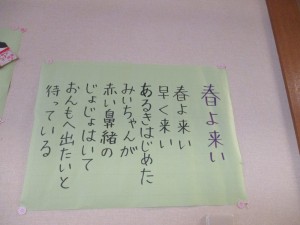 春よ来い
春よ来い
早く来い
あるきはじめた
みいちゃんが
赤い鼻緒の
じょじょはいて
おんもへ出たいと
待っている